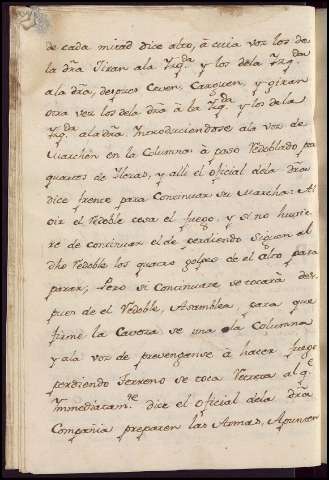 de cada mitad dice alto, â cuia voz los de
la dr̃a Tiran ala Yzq.da y los dela Yzq.da
ala dr̃a, despues Ceven, Carguen, y giran
otra vez los dela dr̃a â la Yzq.da y los dela
Yzq.da ala dr̃a Introduciendose ala voz de
Marchen en la Columna â paso redoblado por
quartos de Ileras, y alli el oficial dela dr̃a
dice frente para Continuar su Marcha: Al
oir el redoble cesa el fuego, y si no huvie
re de continuar el de perdiendo siguen al
dho redoble los quatro golpes de el Alto para
parar; Pero si Continuare se tocarà des
pues de el redoble, Asamblea, para que
firme la Cavera se una â la Columna
y ala voz de prevenganse â hacer fuego
perdiendo Terreno se toca retreta al q.e
ymmediatam.te dice el oficial dela dr̃a
Compañia preparen las Armas, Apunten